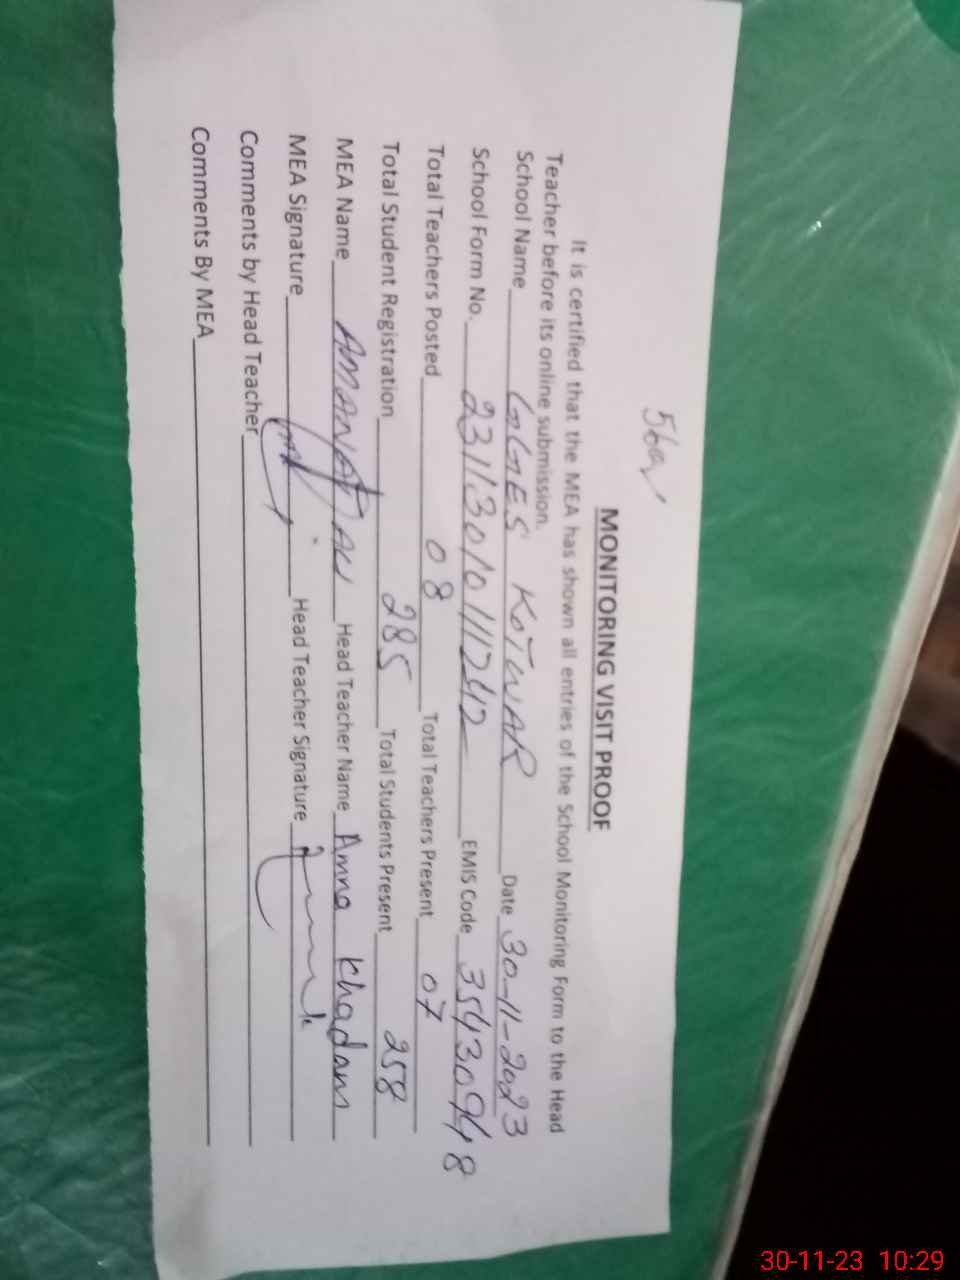 MONITORING VISIT PROOF
It is certified that the MEA has shown all entries of the School Monitoring Form to the Head
Teacher before its online submission.
School Name GGES KOTWAR Date 30-11-2023
School Form No. EMIS Code 35430948
Total Teachers Posted 08 Total Teachers Present 07
Total Student Registration 285 Total Students Present 258
MEA Name AMANAT ALI Head Teacher Name Amna Khadam
MEA Signature Head Teacher Signature
Comments by Head Teacher
Comments By MEA
30-11-23 10:29